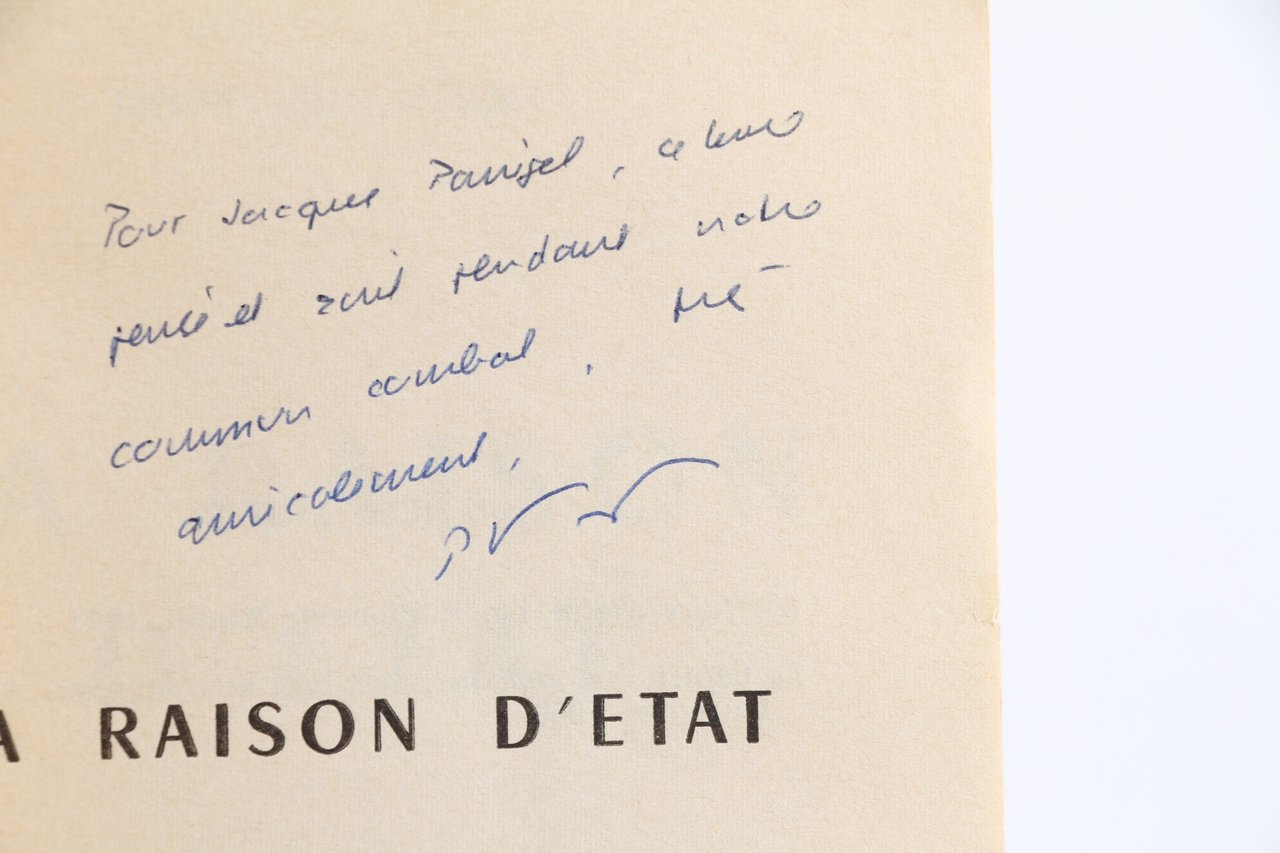 Pour Jacques Panigel, ce livre
pensé et écrit pendant notre
commun combat, très
amicalement,
PV
A RAISON D'ETAT